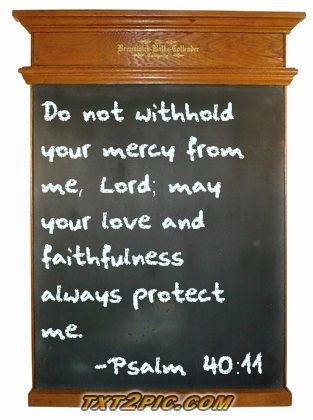 The
Brunswick-Balke-Collender
Company
Do not withhold
your mercy from
me, Lord; may
your love and
faithfulness
always protect
me.
-Psalm 40:11
TXT2PIC.COM